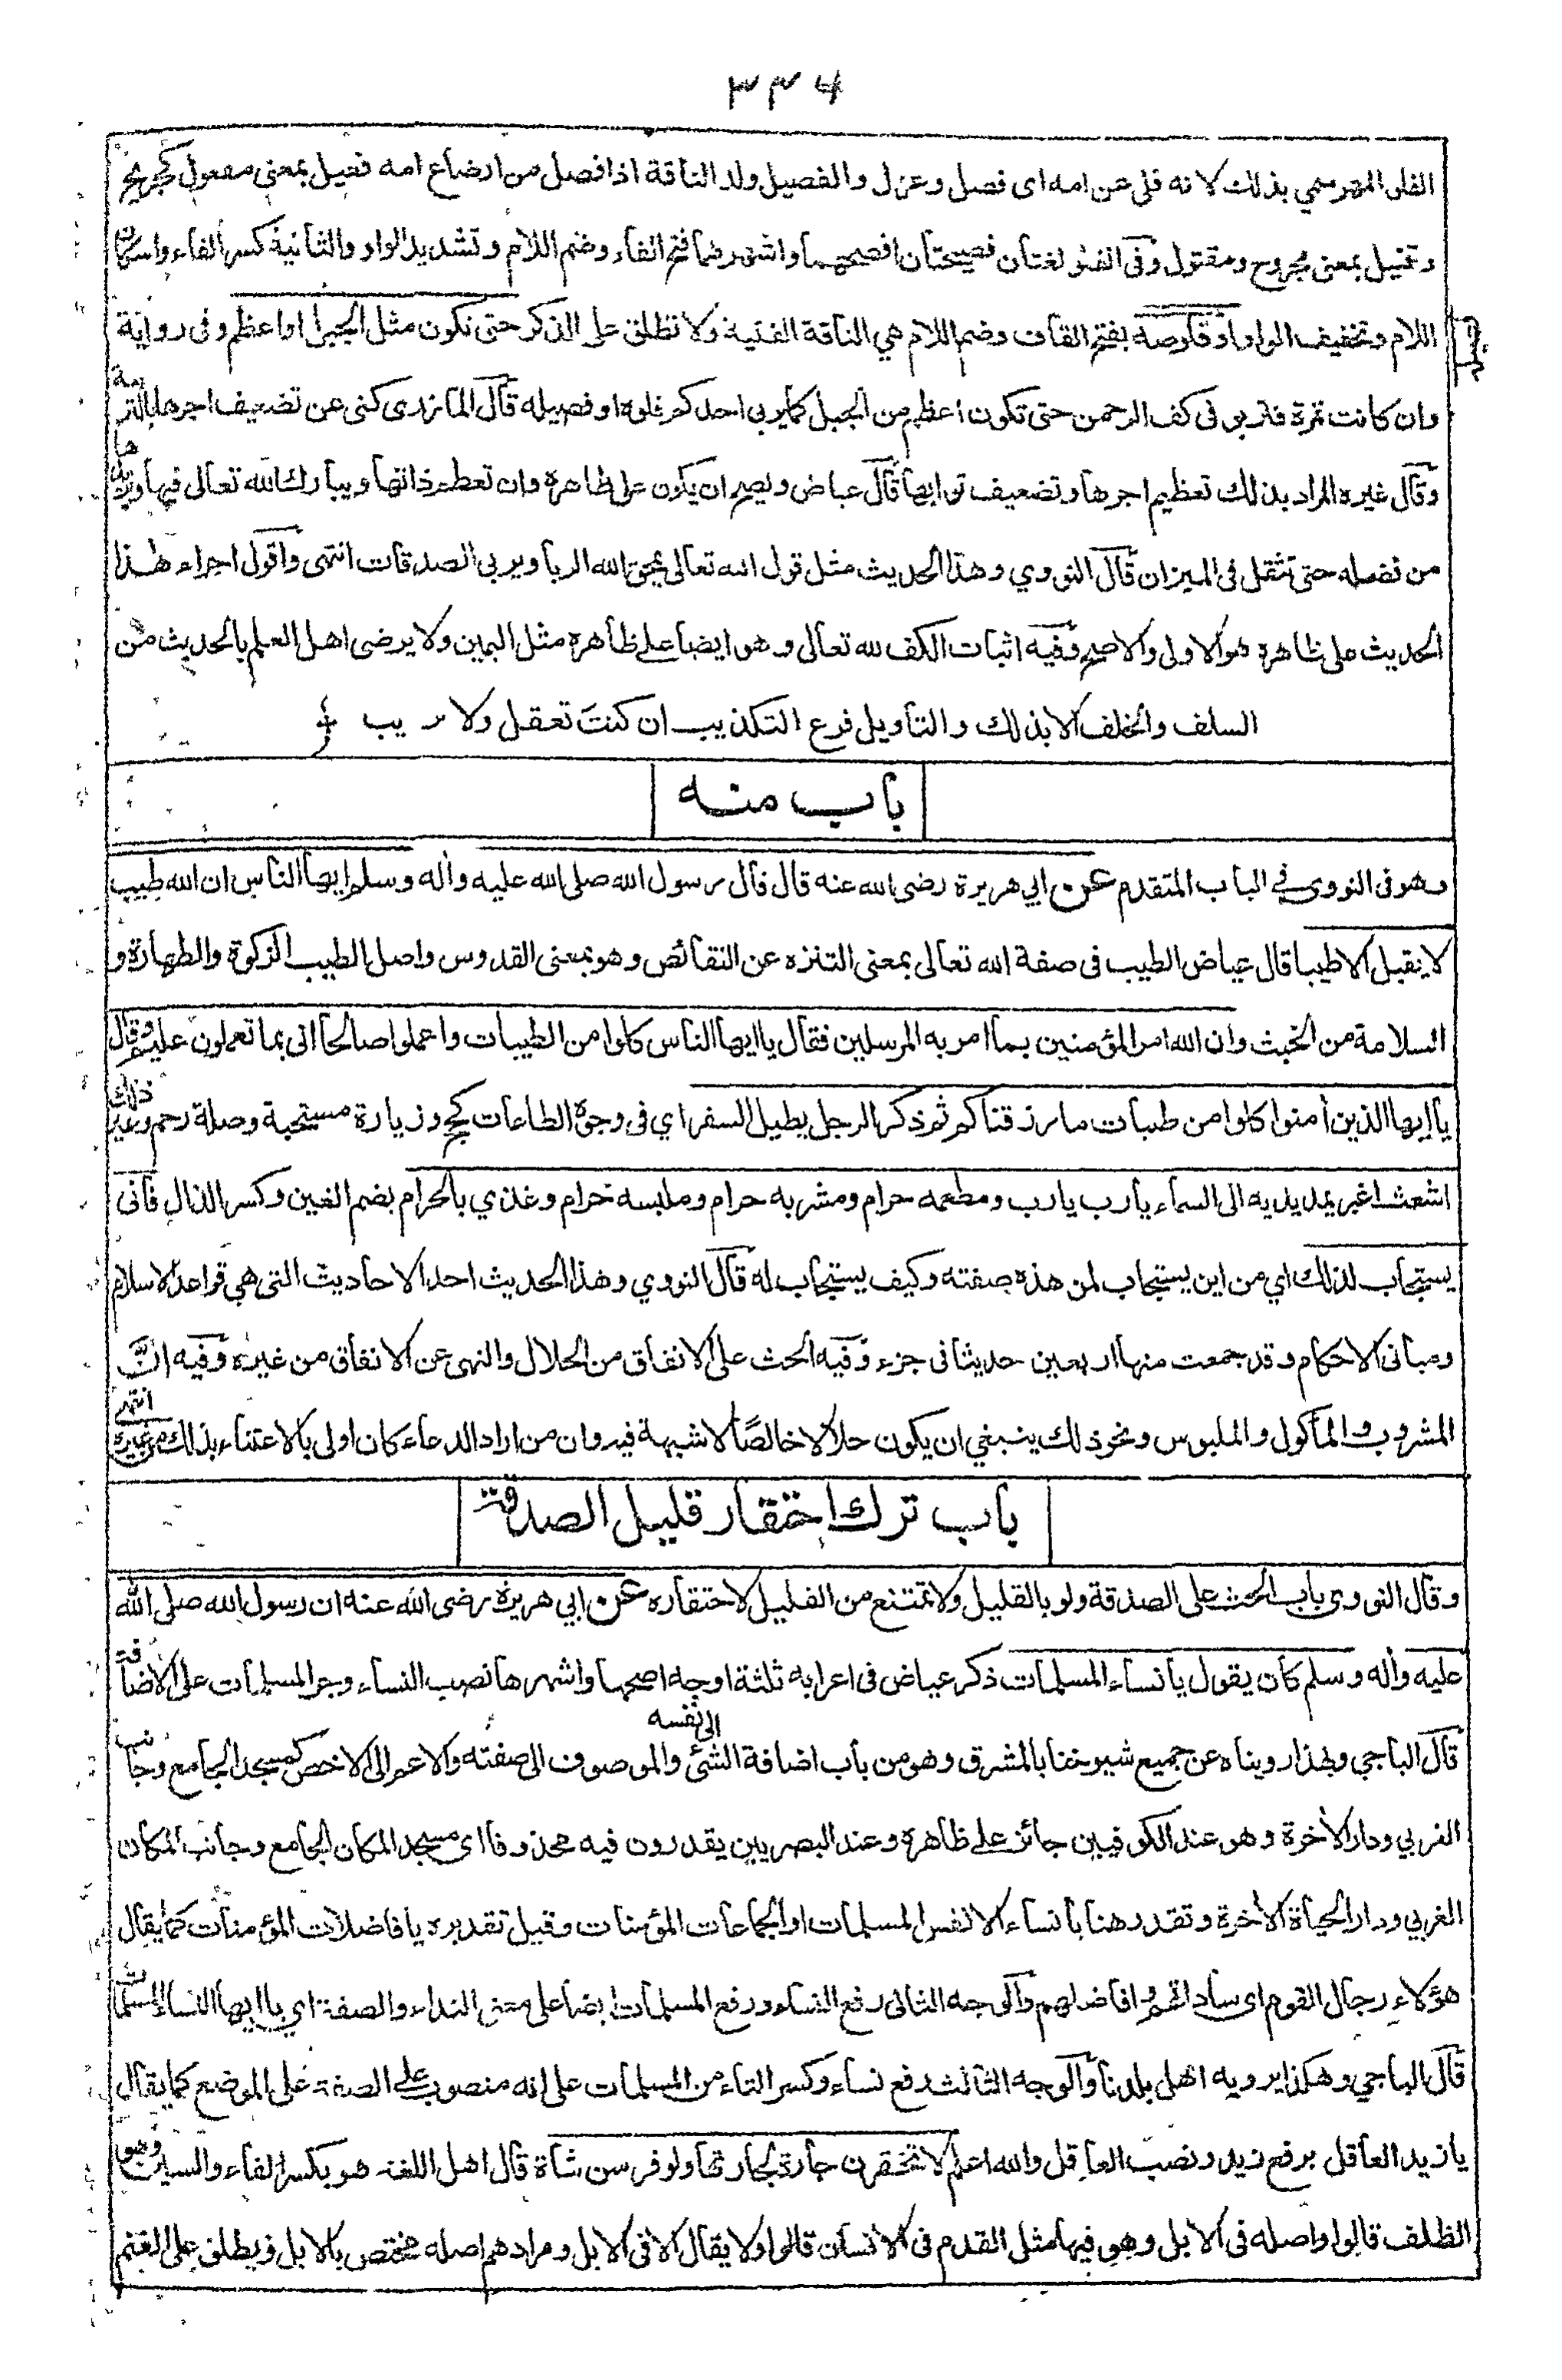 ٣٣٤
الفلو المهر سمي بذلك لانه فلى عن امه اى فصل وعزل والفصيل ولد الناقة اذا فصل من ارضاع امه فعيل بمعنى مفعول كجريح
وقتيل بمعنى مجروح ومقتول وفى الفلو لغتان فصيحتان افصحهما واشهرهما فتح الفاء وضم اللام وتشديد الواو والثانية كسر الفاء واسكان
اللام وتخفيف الواو او قلوصه بفتح القاف وضم اللام هي الناقة الفتية ولا تطلق على الذكر حتى تكون مثل الجبل او اعظم وفى رواية
وان كانت تمرة فتربو فى كف الرحمن حتى تكون اعظم من الجبل كما يربى احدكم فلوه او فصيله قال المازرى كنى عن تضعيف اجرها بالتربية
وقال غيره المراد بذلك تعظيم اجرها وتضعيف ثوابها قال عياض ويصح ان يكون على ظاهره وان تعظم ذاتها ويبارك الله تعالى فيها ويزيدها
من فضله حتى تثقل فى الميزان قال النووي وهذا الحديث مثل قول الله تعالى يمحق الله الربا ويربى الصدقات انتهى واقول اجراء هذا
الحديث على ظاهره هو الاولى والاصح وفيه اثبات الكف لله تعالى وهو ايضا على ظاهره مثل اليمين ولا يرضى اهل العلم بالحديث من
السلف والخلف الا بذلك والتأويل فرع التكذيب ان كنت تعقل ولا ريب
باب منه
وهو فى النووى في الباب المتقدم عن ابي هريرة رضى الله عنه قال قال رسول الله صلى الله عليه واله وسلم ايها الناس ان الله طيب
لا يقبل الا طيبا قال عياض الطيب فى صفة الله تعالى بمعنى التنزه عن النقائص وهو بمعنى القدوس واصل الطيب الزكوة والطهارة و
السلامة من الخبث وان الله امر المؤمنين بما امر به المرسلين فقال يا ايها الناس كلوا من الطيبات واعملوا صالحا انى بما تعملون عليم وقال
يا ايها الذين أمنوا كلوا من طيبات ما رزقناكم ثم ذكر الرجل يطيل السفر اي فى وجوه الطاعات كحج وزيارة مستحبة وصلة رحم وغير ذلك
اشعث اغبر يمد يديه الى السماء يا رب يا رب ومطعمه حرام ومشربه حرام وملبسه حرام وغذي بالحرام بضم الغين وكسر الذال فأنى
يستجاب لذلك اي من اين يستجاب لمن هذه صفته وكيف يستجاب له قال النووي وهذا الحديث احد الاحاديث التى هي قواعد الاسلام
ومبانى الاحكام وقد جمعت منها اربعين حديثا فى جزء وفيه الحث على الانفاق من الحلال والنهى عن الانفاق من غيره وفيه انّ
المشروب والمأكول والملبوس ونحو ذلك ينبغي ان يكون حلالا خالصًا لا شبهة فيه وان من اراد الدعاء كان اولى بالاعتناء بذلك من غيره انتهى
باب ترك احتقار قليل الصدقة
وقال النووى باب الحث على الصدقة ولو بالقليل ولا تمتنع من القليل لاحتقاره عن ابي هريرة رضى الله عنه ان رسول الله صلى الله
عليه واله وسلم كان يقول يا نساء المسلمات ذكر عياض فى اعرابه ثلثة اوجه اصحها واشهرها نصب النساء وجر المسلمات على الاضافة
قال الباجي وبهذا رويناه عن جميع شيوخنا بالمشرق وهو من باب اضافة الشئ الى نفسه والموصوف الى صفته والاعم الى الاخص كمسجد الجامع وجانب
الغربي ودار الأخرة وهو عند الكوفيين جائز على ظاهره وعند البصريين يقدرون فيه محذوفا اى مسجد المكان الجامع وجانب المكان
الغربي ودار الحياة الأخرة وتقدر هنا يا نساء الانفس المسلمات او الجماعات المؤمنات وقيل تقديره يا فاضلات المؤمنات كما يقال
هؤلاء رجال القوم اى ساداتهم وافاضلهم والوجه الثانى رفع النساء ورفع المسلمات ايضا على معنى النداء والصفة اي يا ايها النساء المسلمات
قال الباجي وهكذا يرويه اهل بلدنا والوجه الثالث رفع نساء وكسر التاء من المسلمات على انه منصوب على الصفة على الموضع كما يقال
يا زيد العاقل برفع زيد ونصب العاقل والله اعلم لا تحقرن جارة لجارتها ولو فرسن شاة قال اهل اللغة هو بكسر الفاء والسين وهو
الظلف قالوا واصله فى الابل وهو فيها مثل القدم فى الانسان قالوا ولا يقال الا فى الابل ومرادهم اصله مختص بالابل ويطلق على الغنم